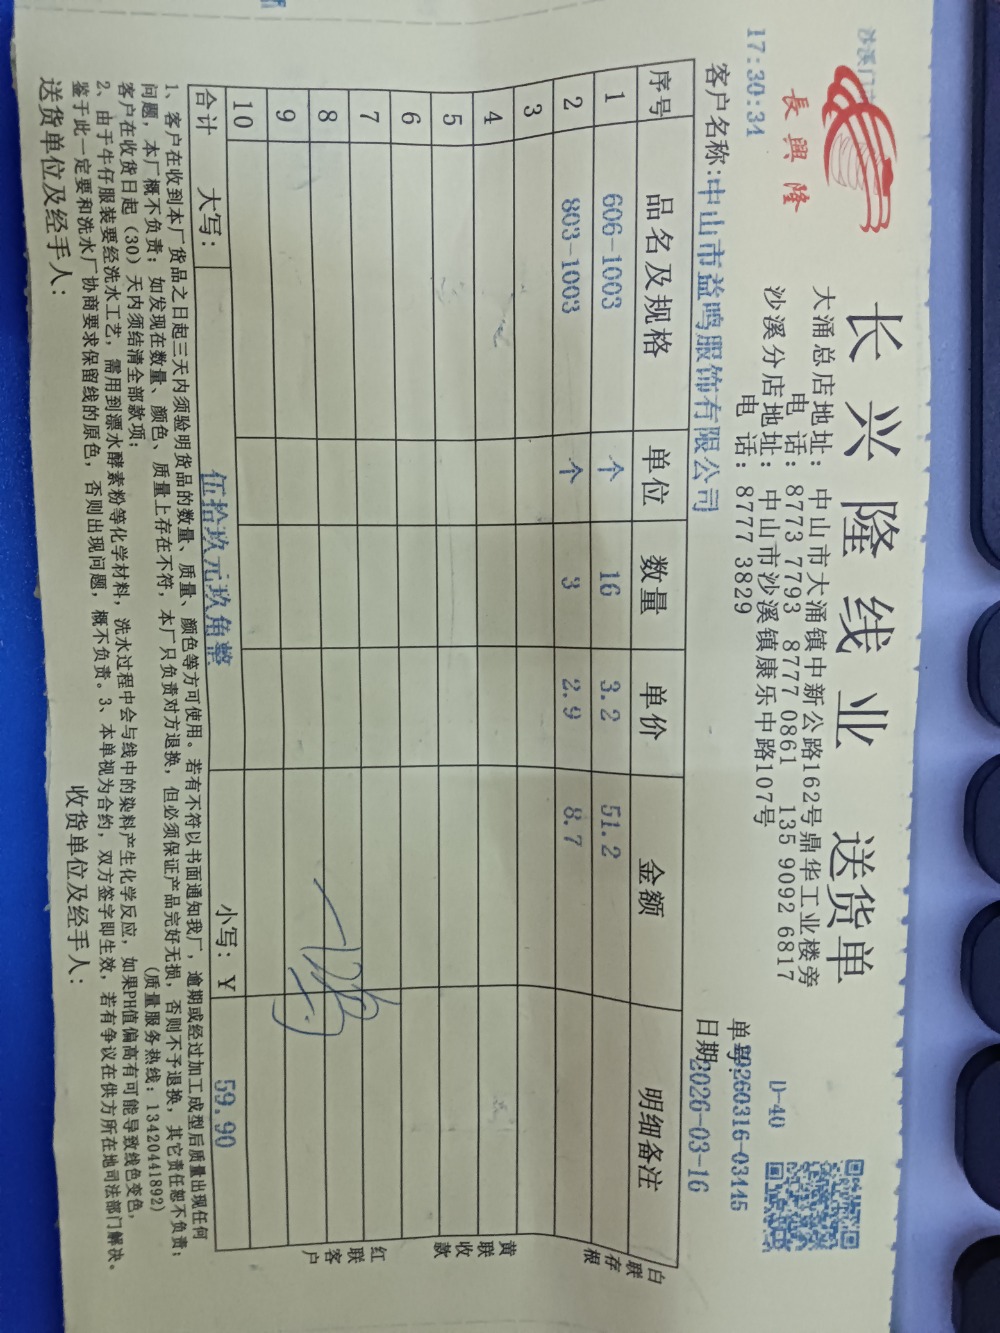 沙溪门
長興隆
17:30:34
长兴隆线业 送货单
大涌总店地址：中山市大涌镇中新公路162号鼎华工业楼旁
电 话：8773 7793 8777 0861 135 9092 6817
沙溪分店地址：中山市沙溪镇康乐中路107号
电 话：8777 3829
D-40
单号:20260316-03445
客户名称:中山市益鸣服饰有限公司
日期:2026-03-16
序号 品名及规格 单位 数量 单价 金额 明细备注
1 606-1003 个 16 3.2 51.2
2 803-1003 个 3 2.9 8.7
3
4
5
6
7
8
9
10
合计 大写： 伍拾玖元玖角整 小写：￥ 59.90
白联存根
黄联收款
红联客户
1、客户在收到本厂货品之日起三天内须验明货品的数量、质量、颜色等方可使用。若有不符以书面通知我厂，逾期或经过加工成型后质量出现任何
问题，本厂概不负责；如发现在数量、颜色、质量上存在不符，本厂只负责对方退换，但必须保证产品完好无损，否则不予退换，其它责任恕不负责；
客户在收货日起（30）天内须结清全部款项； (质量服务热线：13420441892)
2、由于牛仔服装要经洗水工艺，需用到漂水酵素粉等化学材料，洗水过程中会与线中的染料产生化学反应，如果PH值偏高有可能导致线色变色，
鉴于此一定要和洗水厂协商要求保留线的原色，否则出现问题，概不负责。3、本单视为合约，双方签字即生效，若有争议在供方所在地司法部门解决。
送货单位及经手人： 收货单位及经手人：